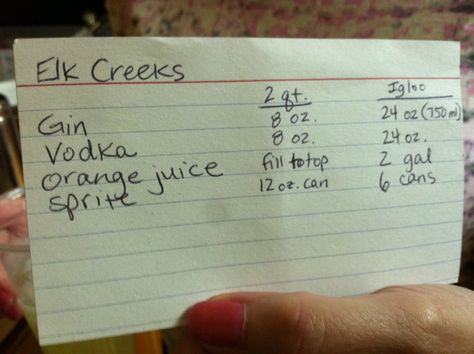 Elk Creeks
2 qt. Igloo
Gin 8 oz. 24 oz (750 ml)
Vodka 8 oz. 24 oz.
orange juice fill to top 2 gal
sprite 12 oz. can 6 cans